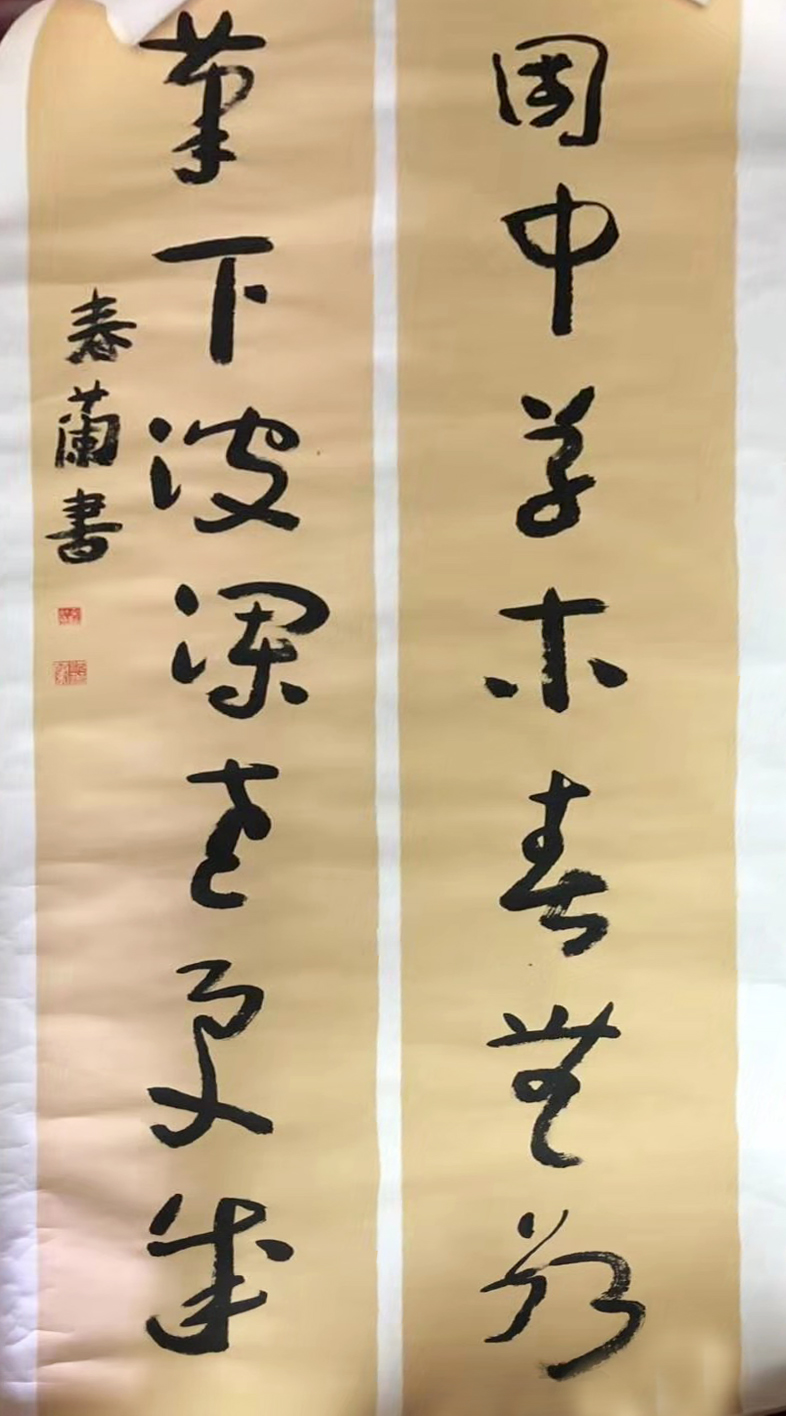 園中草木春無數
筆下波瀾老更成
春蘭書